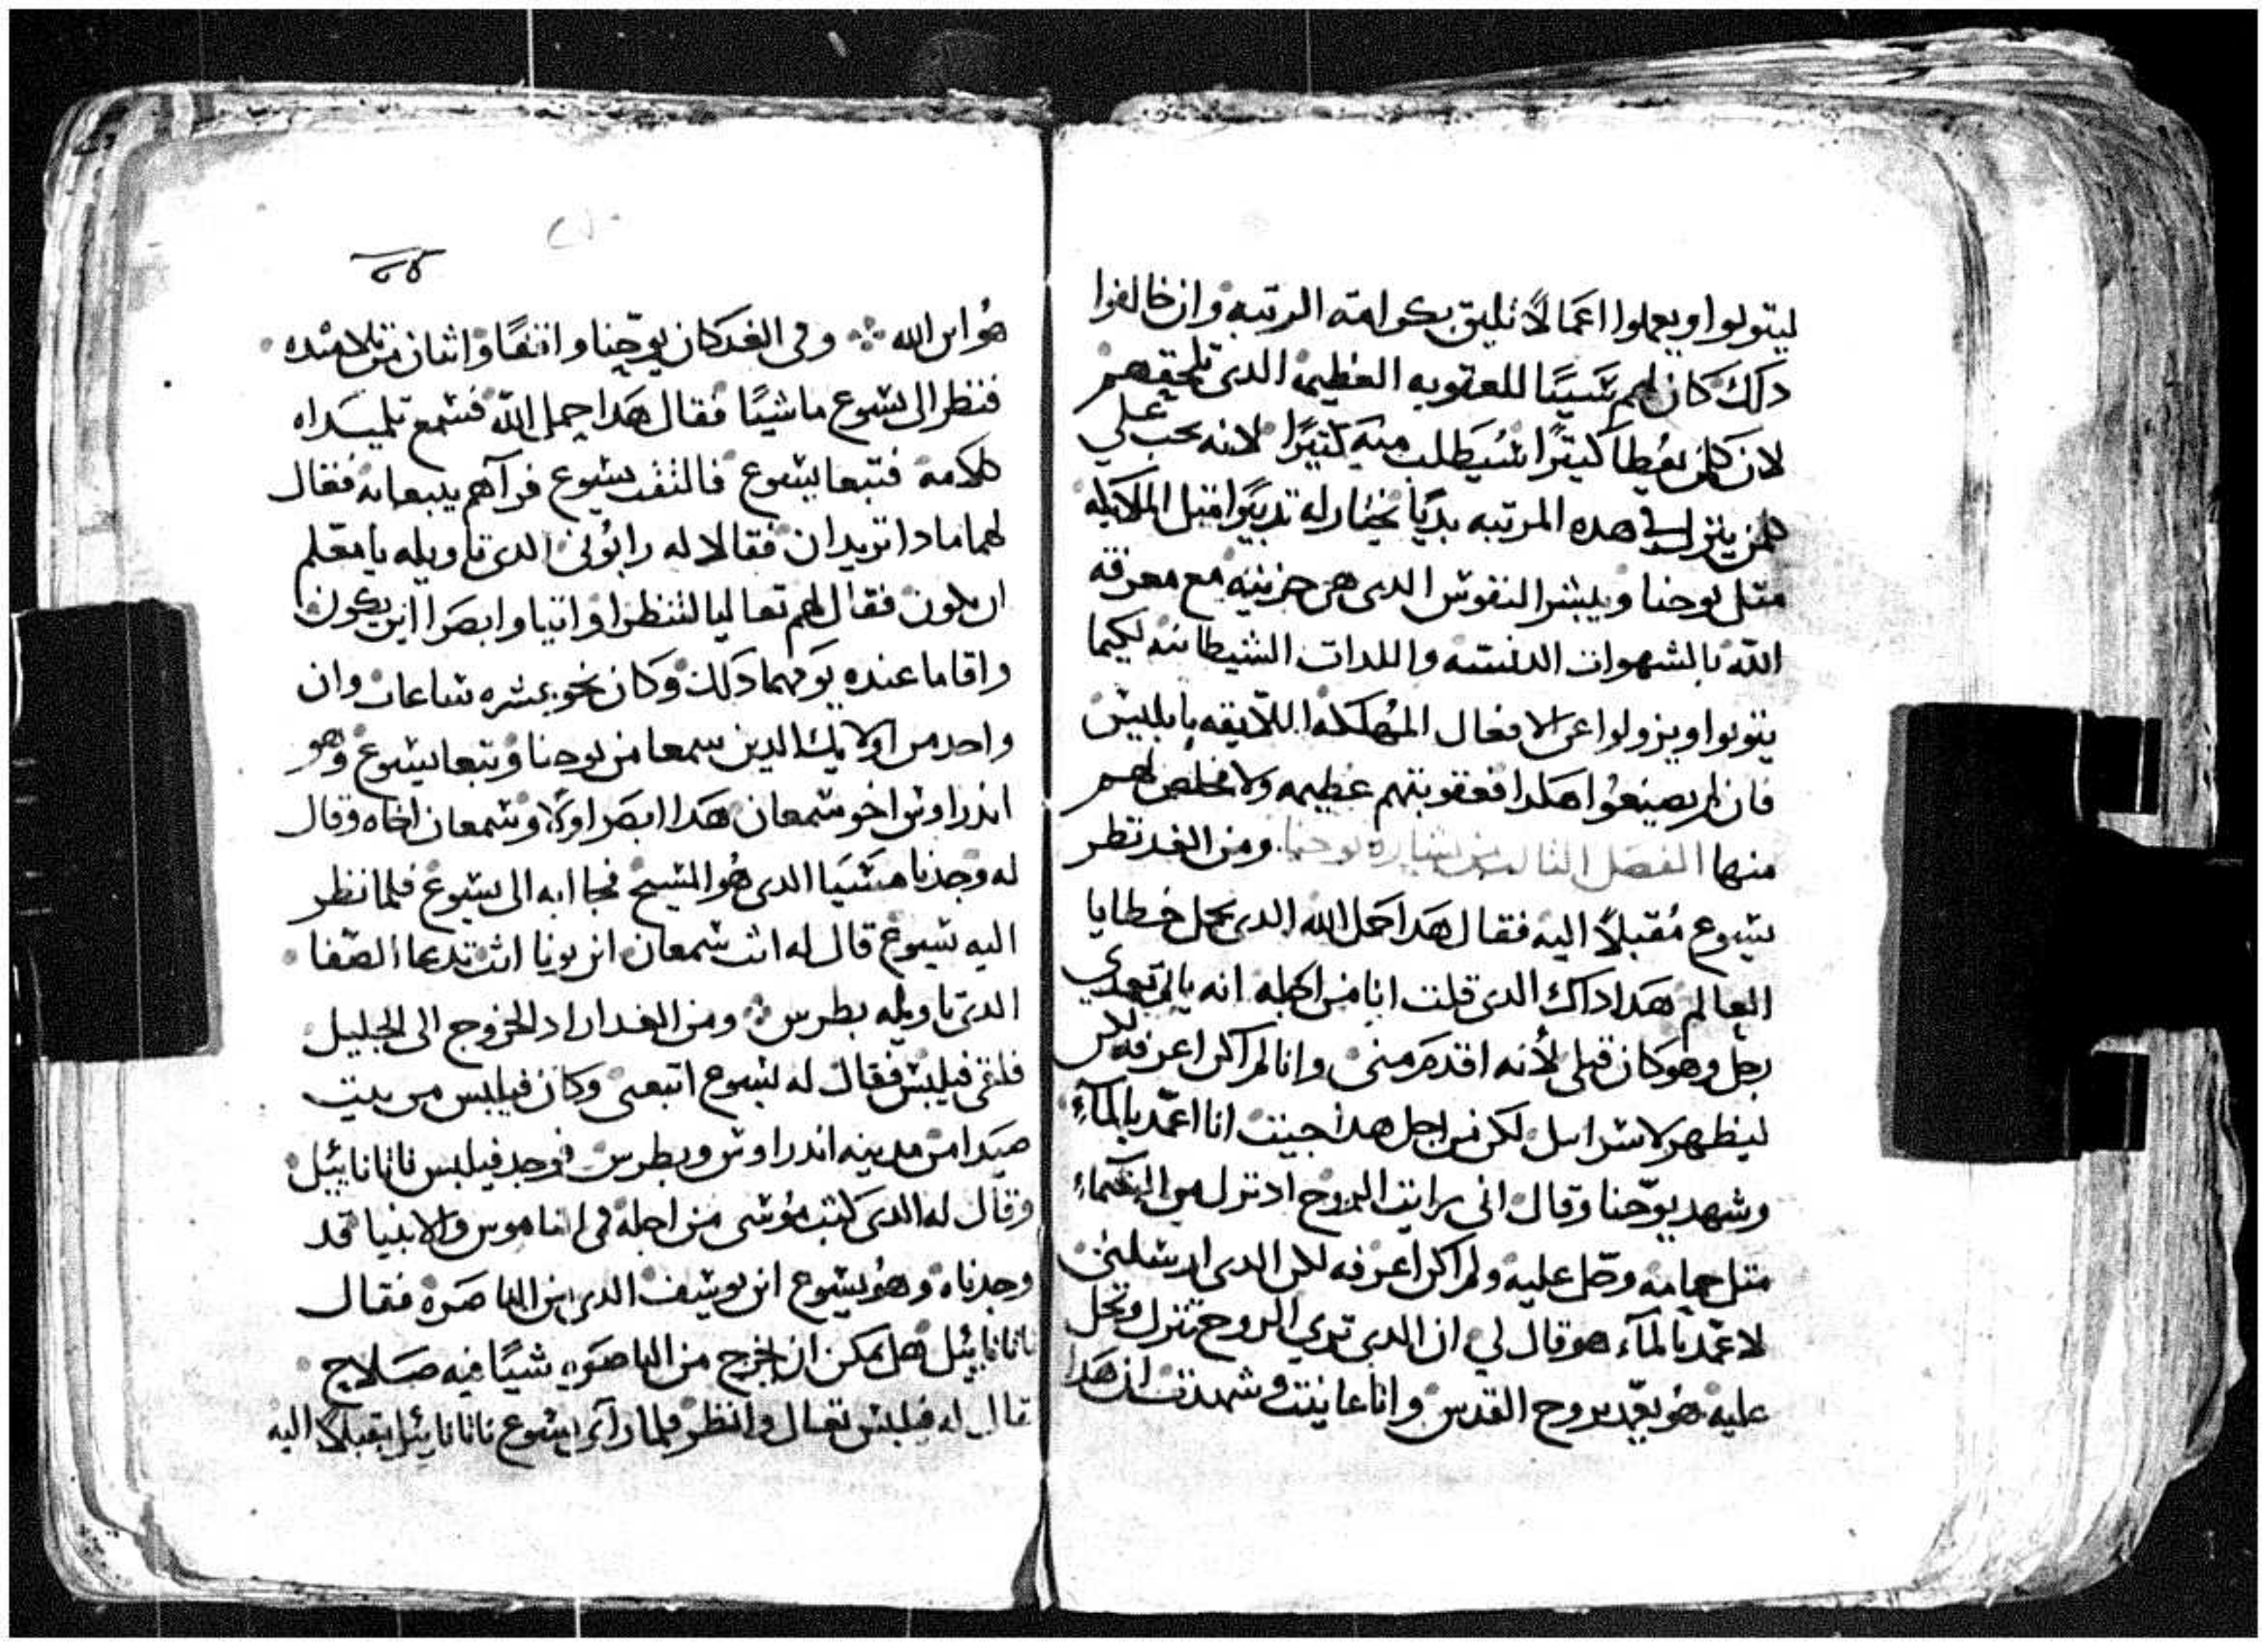 ليتوبوا ويعملوا اعمالاً تليق بكرامة الرتبه وان خالفوا
دلك كان لهم سبباً للعقوبه العظيمه الدى تلحقهم
لان كلمن يعطا كثيراً سيطلب منه كثيراً لانه يجب على
كلمن ينزل فى هده المرتبه بديا يختار له تدبيراً قبل الملايكه
متل يوحنا ويبشر النفوس الدى هى حزينه مع معرفة
الله بالشهوات الدنسه واللدات الشيطانيه لكيما
يتوبوا ويزولوا عن الافعال المهلكه اللايقه بابليس
فان لم يصنعوا هكدا فعقوبتهم عظيمه ولا مخلص لهم
منها الفصل الثالث من بشارة يوحنا ومن الغد نظر
يسوع مقبلاً اليه فقال هدا حمل الله الدى يحمل خطايا
العالم هدا داك الدى قلت انا من اجله انه ياتى بعدي
رجل وهو كان قبلى لأنه اقدم منى وانا لم اكن اعرفه لكن
ليظهر لاسراىيل لكن من اجل هدا جيت انا اعمد بالمآء
وشهد يوحنا وقال انى رايت الروح ادنزل من السماء
متل حمامه وحل عليه ولم اكن اعرفه لكن الدى ارسلنى
لاعمد بالمآء هو قال لي ان الدى تري الروح تنزل وتحل
عليه هو يعمد بروح القدس وانا عاينت وشهدت ان هدا
٤٥
هو ابن الله وفى الغد كان يوحنا واقفاً واثنان من تلاميده
فنظر الى يسوع ماشياً فقال هدا حمل الله فسمع تلميداه
كلامه فتبعا يسوع فالتفت يسوع فرآهم يتبعانه فقال
لهما مادا تريدان فقالا له رابونى الدى تاويله يا معلم
اين تكون فقال لهم تعاليا لتنظرا واتيا وابصرا اين يكون
واقاما عنده يومهما دلك وكان نحو عشره ساعات وان
واحد من اولايك الدين سمعا من يوحنا وتبعا يسوع وهو
اندراوس اخو سمعان هدا ابصر اولاً وسمعان اخاه وقال
له وجدنا مسيا الدى هو المسيح فجا ابه الى يسوع فلما نظر
اليه يسوع قال له انت سمعان ابن يونا انت تدعا الصفا
الدى تاويله بطرس ومن الغد اراد الخروج الى الجليل
فلقى فيلبس فقال له يسوع اتبعنى وكان فيلبس من بيت
صيدا من مدينه اندراوس وبطرس فوجد فيلبس ناتانائيل
وقال له الدى كتب موسى من اجله فى الناموس والانبيا قد
وجدناه وهو يسوع ابن يوسف الدى من الناصره فقال
ناتانائيل هل يمكن ان يخرج من الناصره شياً فيه صلاح
قال له فيلبس تعال وانظر فلما رآى يسوع ناتانائيل مقبلاً اليه